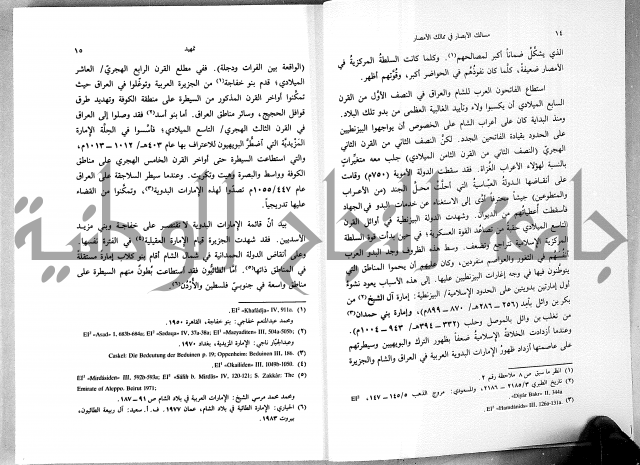 ١٤
مسالك الأبصار في ممالك الأمصار
الذي يشكّل ضماناً أكبر لمصالحهم(١). وكلما كانت السلطة المركزية في
الأمصار ضعيفةً، كلّما كان نفوذُهم في الحواضر أكبر، وقُوّتهم أظهر.
استطاع الفاتحون العرب للشام والعراق في النصف الأوّل من القرن
السابع الميلادي أن يكسبوا ولاء وتأييد الغالبية العظمى من بدو تلك البلاد.
ومنذ البداية كان على أعراب الشام على الخصوص أن يواجهوا البيزنطيين
على الحدود بقيادة الفاتحين الجدد. لكنّ النصف الثاني من القرن الثاني
الهجري (النصف الثاني من القرن الثامن الميلادي) جلب معه متغيّراتٍ
بالنسبة لهؤلاء الأعراب الغُزاة. فقد سقطت الدولة الأموية (٧٥٠م) وقامت
على أنقاضها الدولة العباسية التي أحلّت محلّ الجند (من الأعراب
والمتطوعين) جيشاً محترفاً أدّى إلى الاستغناء عن خدمات البدو في الجهاد
فأسقطت أعطياتهم من الديوان. وشهدت الدولة البيزنطية في أوائل القرن
التاسع الميلادي
المركزية الإسلامية تتراجع وتضعف. وسط هذه الظروف وجد البدو العرب
أنفسهم في الثغور والعواصم منفردين، وكان عليهم أن يحموا المناطق التي
يتوطنون فيها في وجه إغارات البيزنطيين عليها. إلى هذه الأسباب يعود نشوءُ
أول إمارتين بدويتين على الحدود الإسلامية/ البيزنطية: إمارة آل الشيخ(٢) من
بكر بن وائل بآمد (٢٥٦ - ٢٨٦هـ/ ٨٧٠ - ٨٩٩م)، وإمارة بني حمدان(٣)
من تغلب بن وائل بالموصل وحلب (٣٣٢ - ٣٩٤هـ/ ٩٤٣ - ١٠٠٤م).
وعندما ازدادت الخلافة الإسلامية ضعفاً بظهور الترك والبويهيين وسيطرتهم
على عاصمتها ازداد ظهورُ الإمارات البدوية العربية في العراق والشام والجزيرة
(١) انظر ما سبق ص ٨ ملاحظة رقم ٢.
(٢) تاريخ الطبري ٢١٨٥/٣ - ٢١٨٦، والمسعودي: مروج الذهب ١٤٥/٥ - ١٤٧، EI²
«Diyār Bakr» II. 344a
(٣) EI² «Hamdānids» III. 126a-131a.
تمهيد
١٥
(الواقعة بين الفرات ودجلة). ففي مطلع القرن الرابع الهجري/ العاشر
الميلادي؛ قدم بنو خفاجة(١) من الجزيرة العربية وتوغّلوا في العراق حيث
تمكّنوا أواخر القرن المذكور من السيطرة على منطقة الكوفة وتهديد طرق
قوافل الحجيج، وسائر مناطق العراق. أما بنو أسد(٢) فقد وصلوا إلى العراق
في القرن الثالث الهجري/ التاسع الميلادي؛ فأسّسوا في الحِلّة الإمارة
المَزْيدية التي اضطُرَّ البويهيون للاعتراف بها عام ٤٠٣هـ/ ١٠١٢ - ١٠١٣م،
والتي استطاعت السيطرة حتى أواخر القرن الخامس الهجري على مناطق
الكوفة وواسط والبصرة وهيت وتكريت. وعندما سيطر السلاجقة على العراق
عام ٤٤٧/ ١٠٥٥م تصدّوا لهذه الإمارات البدوية(٣)، وتمكّنوا من القضاء
عليها تدريجياً.
بيد أنّ قائمة الإمارات البدوية لا تقتصر على خفاجة وبني مزيد
الأسديين. فقد شهدت الجزيرة قيام الإمارة العقيلية(٤) في الفترة نفسها.
وعلى أنقاض الدولة الحمدانية في شمال الشام أقام بنو كلاب إمارة مستقلة
في المناطق ذاتها(٥). أمّا الطائيّون فقد استطاعت بُطونٌ منهم السيطرة على
مناطق واسعة في جنوبي فلسطين والأردُنّ(٦).
(١) EI² «Khafādja» IV, 911a.
ومحمد عبدالمنعم خفاجي: بنو خفاجة، القاهرة ١٩٥٠.
(٢) EI² «Asad» I, 683b-684a; EI¹ «Sadaqa» IV, 37a-38a; EI¹ «Mazyaditen» III, 504a-505b;
وعبدالجبّار ناجي: الإمارة المزيدية، بغداد ١٩٧٠.
(٣) Caskel: Die Bedeutung der Beduinen p. 19; Oppenheim: Beduinen III, 186.
(٤) EI¹ «Okailiden» III. 1049b-1050.
(٥) EI¹ «Mirdāsiden» III, 592b-593a; EI¹ «Sālih b. Mirdās» IV, 120-121; S. Zakkār: The
Emirate of Aleppo. Beirut 1971;
ومحمد محمد مرسي الشيخ: الإمارات العربية في بلاد الشام ص ٩١ - ١٨٧.
(٦) الحياري: الإمارة الطائية في بلاد الشام، عمان ١٩٧٧. ف. أ. سعيد: آل ربيعة الطائيون،
بيروت ١٩٨٣.